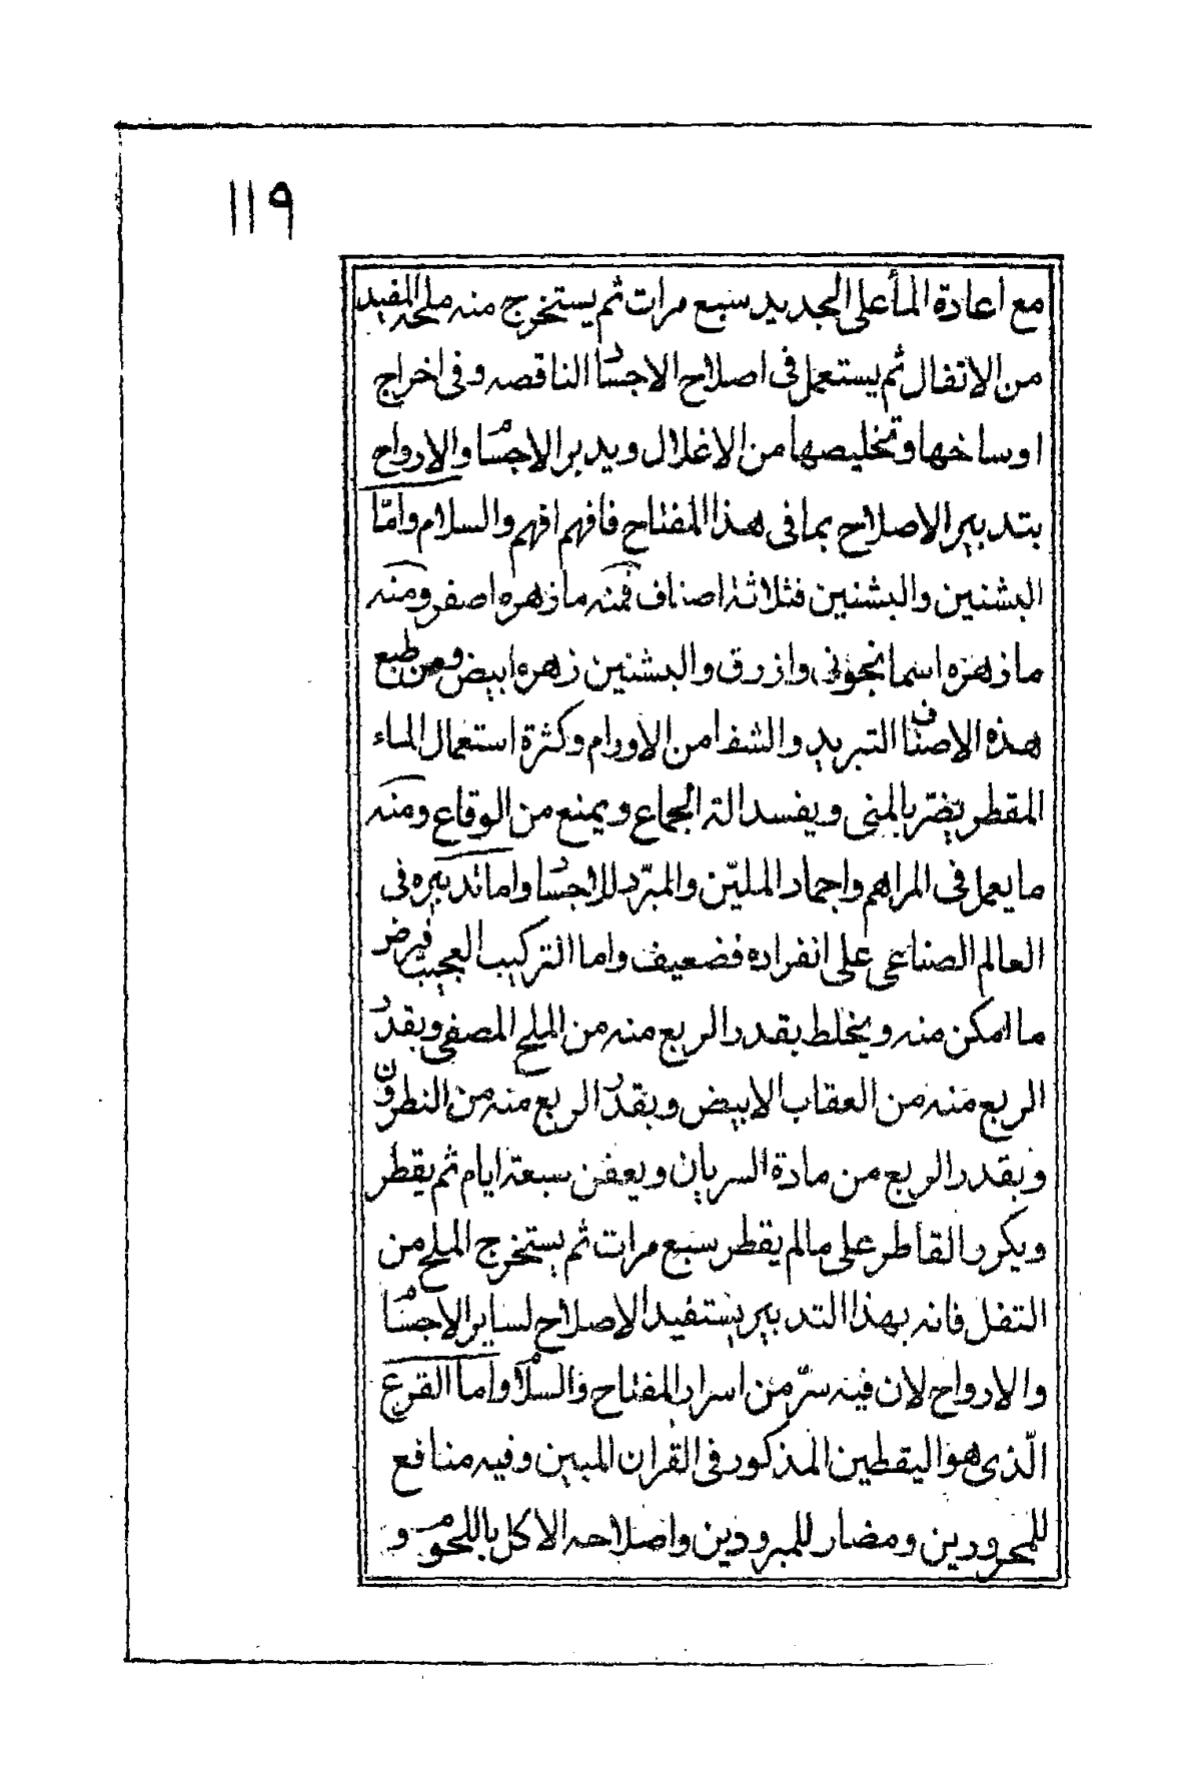 ١١٩
مع اعادة المأ على الجديد سبع مرات ثم يستخرج منه ملحه المفيد
من الاتفال ثم يستعمل فى اصلاح الاجساد الناقصه وفى اخراج
اوساخها وتخليصها من الاغلال ويدبر الاجسام والارواح
بتدبير الاصلاح بما فى هذا المفتاح فافهم افهم والسلام وامّا
البشنين والبشنين فثلاثة اصناف فمنه ما زهره اصفر ومنه
ما زهره اسمانجونى وازرق والبشنين زهره ابيض ومن طبع
هذه الاصناف التبريد والشفا من الاورام وكثرة استعمال الماء
المقطر يضرّ بالمنى ويفسد الة الجماع ويمنع من الوقاع ومنه
ما يعمل فى المراهم واجماد المليّن والمبرّد للاجساد واما تدبيره فى
العالم الصناعى على انفراده فضعيف واما التركيب العجيب فيرض
ما امكن منه ويخلط بقدر الربع منه من الملح المصفى وبقدر
الربع منه من العقاب الابيض وبقدر الربع منه من النطرون
وبقدر الربع من مادة السريان ويعفن سبعة ايام ثم يقطر
ويكرر القاطر على مالم يقطر سبع مرات ثم يستخرج الملح من
التفل فانه بهذا التدبير يستفيد الاصلاح لساير الاجسام
والارواح لان فيه سرّ من اسرار المفتاح والسلام واما القرع
الّذى هو اليقطين المذكور فى القران المبين وفيه منافع
للمحرورين ومضار للمبرودين واصلاحه الاكل باللحوم و